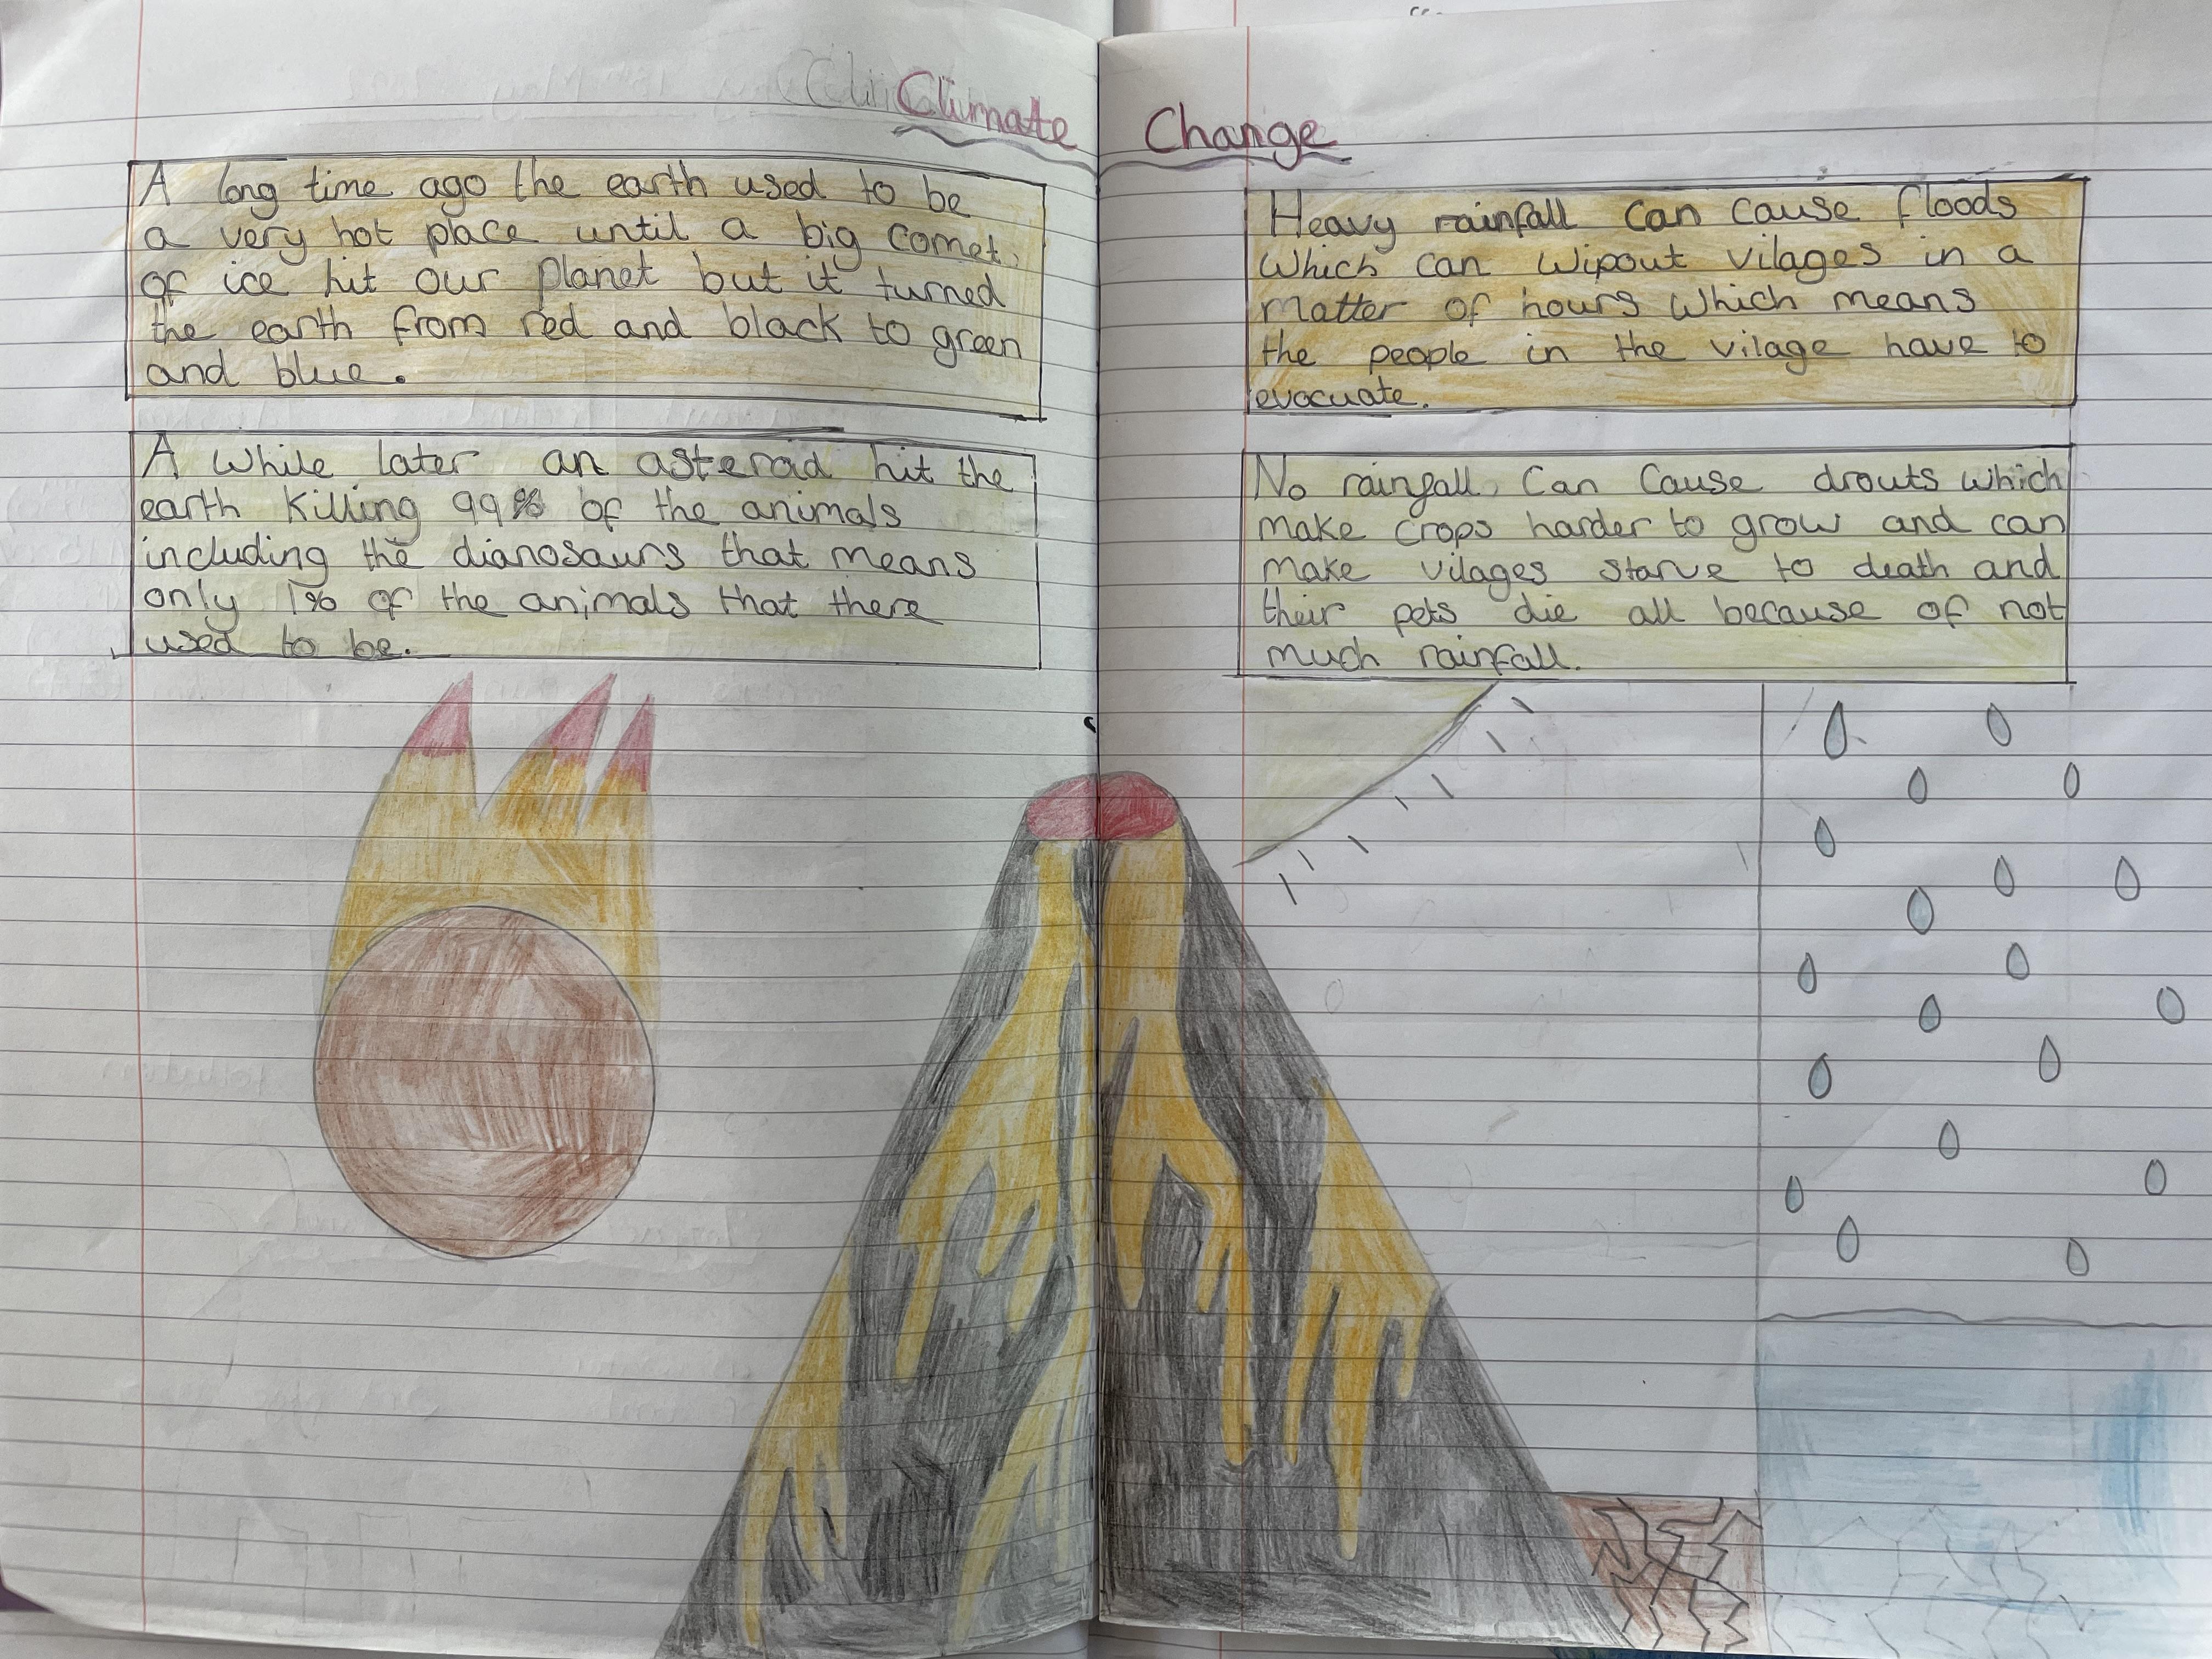 Climate Change
A long time ago the earth used to be
a very hot place until a big comet
of ice hit our planet but it turned
the earth from red and black to green
and blue.
A while later an asteroid hit the
earth killing 99% of the animals
including the dianosaurs that means
only 1% of the animals that there
used to be.
Heavy rainfall can cause floods
which can wipout vilages in a
matter of hours which means
the people in the vilage have to
evacuate.
No rainfall can cause drouts which
make crops harder to grow and can
make vilages starve to death and
their pets die all because of not
much rainfall.